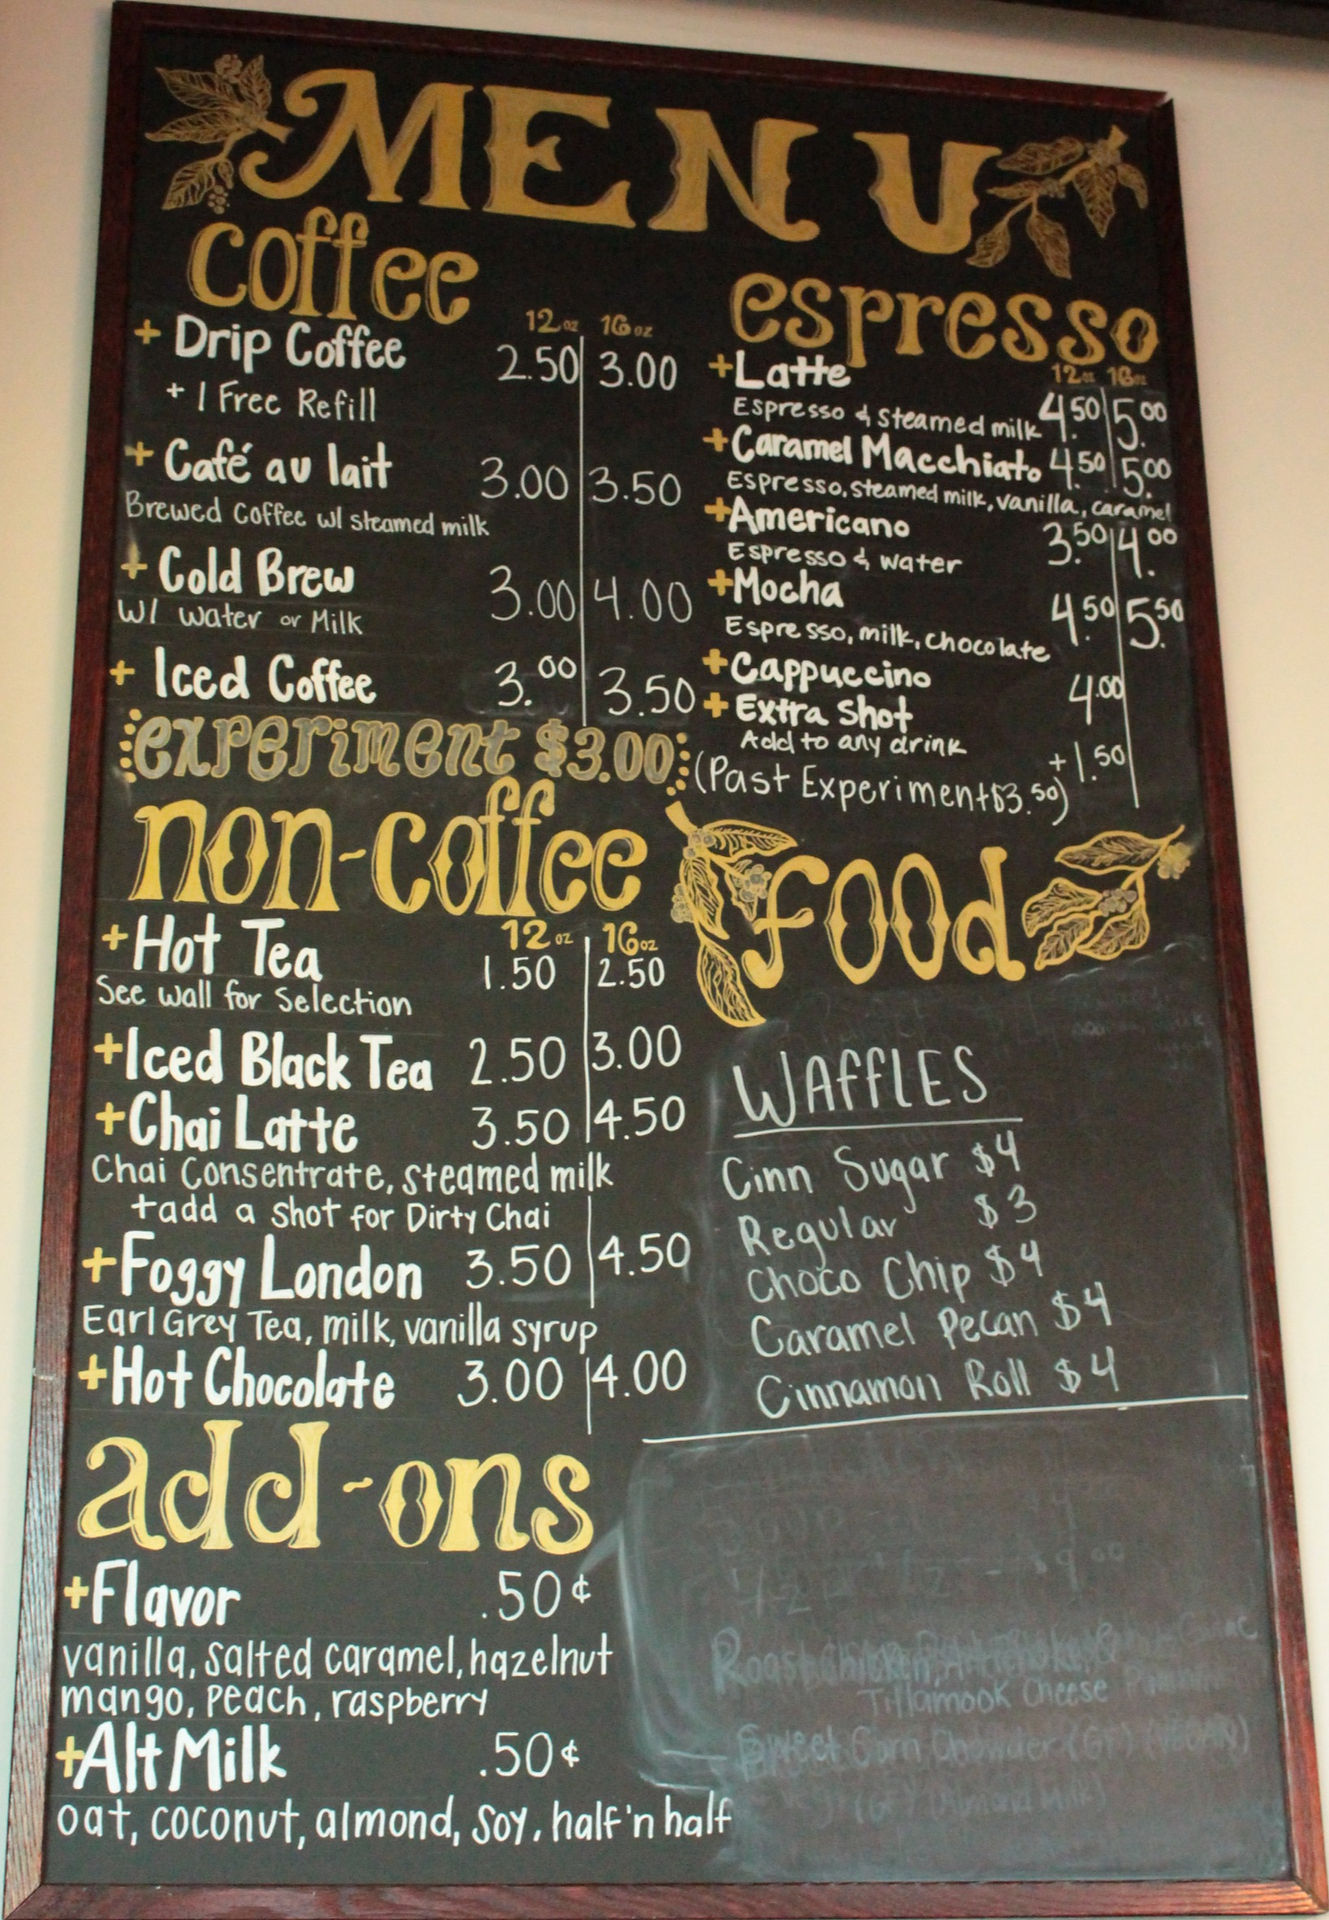 MENU
coffee
12oz 16oz
+ Drip Coffee 2.50 3.00
+ 1 Free Refill
+ Café au lait 3.00 3.50
Brewed Coffee w/ steamed milk
+ Cold Brew 3.00 4.00
w/ water or Milk
+ Iced Coffee 3.00 3.50
experiment $3.00
(Past Experiment $3.50)
espresso
12oz 16oz
+ Latte 4.50 5.00
Espresso & steamed milk
+ Caramel Macchiato 4.50 5.00
Espresso, steamed milk, vanilla, caramel
+ Americano 3.50 4.00
Espresso & water
+ Mocha 4.50 5.50
Espresso, milk, chocolate
+ Cappuccino 4.00
+ Extra Shot +1.50
Add to any drink
non-coffee
12oz 16oz
+ Hot Tea 1.50 2.50
See wall for Selection
+ Iced Black Tea 2.50 3.00
+ Chai Latte 3.50 4.50
Chai Consentrate, steamed milk
+add a shot for Dirty Chai
+ Foggy London 3.50 4.50
Earl Grey Tea, milk, vanilla syrup
+ Hot Chocolate 3.00 4.00
add-ons
+ Flavor .50¢
vanilla, salted caramel, hazelnut
mango, peach, raspberry
+ Alt Milk .50¢
oat, coconut, almond, soy, half 'n half
food
WAFFLES
Cinn Sugar $4
Regular $3
Choco Chip $4
Caramel Pecan $4
Cinnamon Roll $4
Tillamook Cheese
Sweet Corn Chowder (GF) (VEGAN)
(GF) (Almond Milk)